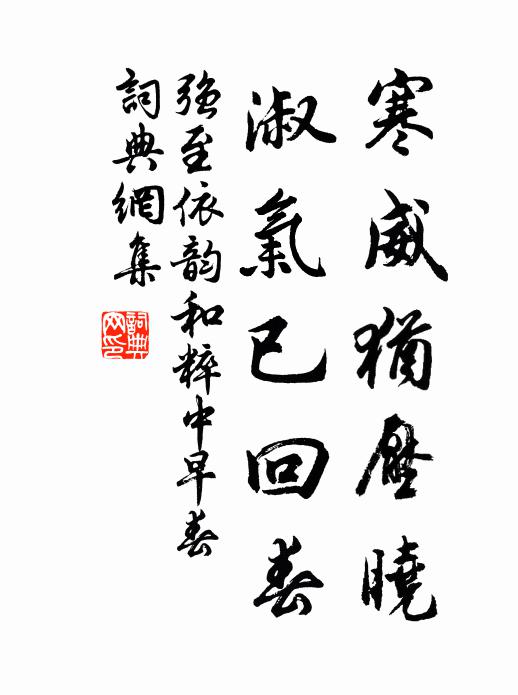 寒威猶壓曉
淑氣已回春
強至依韵和粹中早春
詞典網集
詞典網印